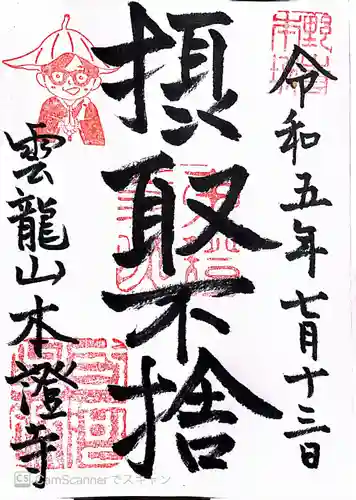 令和五年七月十三日
摂取不捨
雲龍山本證寺
CS CamScanner でスキャン